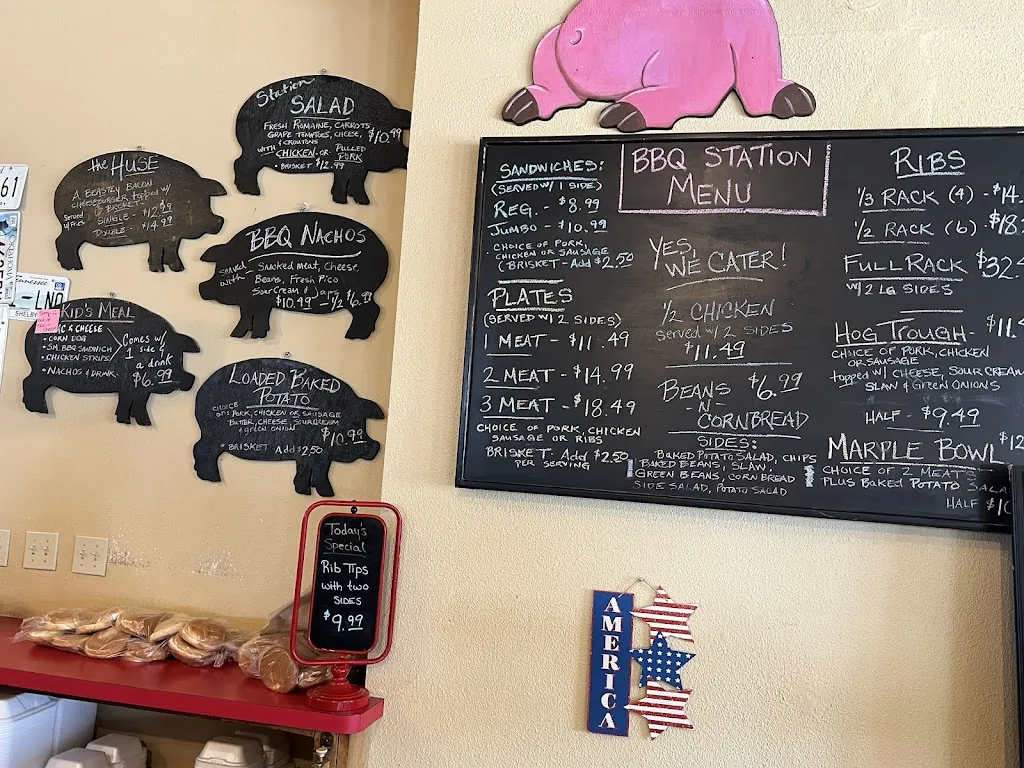 61
Tennessee
-LND
SHELBY
the HUSE
A BEASTEY BACON
CHEESEBURGER topped w/
BRISKET
Served
w/ FRIES
SINGLE - $12.99
DOUBLE - $14.99
Station
SALAD
FRESH ROMAINE, CARROTS,
GRAPE TOMATOES, CHEESE,
& CROUTONS
$10.99
WITH CHICKEN OR PULLED
PORK
BRISKET $12.99
BBQ NACHOS
Served
with
Smoked meat, Cheese,
Beans, Fresh Pico
Sour Cream &
$10.99 1/2 $6.
KID'S MEAL
& CHEESE
• CORN DOG
• SM. BBQ SANDWICH
• CHICKEN STRIPS
• NACHOS & DRINK
Comes w/
1 side &
a drink
$6.99
LOADED BAKED
POTATO
CHOICE
OF: PORK, CHICKEN OR SAUSAGE
BUTTER, CHEESE, SOUR CREAM
& GREEN ONION
$10.99
• BRISKET Add $2.50
Today's
Special
Rib Tips
with two
SIDES
$9.99
BBQ STATION
MENU
SANDWICHES:
(SERVED W/ 1 SIDE)
REG. - $8.99
JUMBO - $10.99
CHOICE OF PORK,
CHICKEN OR SAUSAGE
(BRISKET - Add $2.50
PLATES
(SERVED W/ 2 SIDES)
1 MEAT - $11.49
2 MEAT - $14.99
3 MEAT - $18.49
CHOICE OF PORK, CHICKEN
SAUSAGE OR RIBS
BRISKET - Add $2.50
PER SERVING
YES,
WE CATER!
1/2 CHICKEN
Served w/ 2 SIDES
$11.49
BEANS $6.99
-N-
CORNBREAD
SIDES:
BAKED POTATO SALAD, CHIPS
BAKED BEANS, SLAW,
GREEN BEANS, CORN BREAD
SIDE SALAD, POTATO SALAD
RIBS
1/3 RACK (4) - $14.
1/2 RACK (6) - $18.
FULL RACK $32.
W/ 2 LG SIDES
HOG TROUGH - $11.
CHOICE OF PORK, CHICKEN
OR SAUSAGE
topped w/ CHEESE, SOUR CREAM
SLAW & GREEN ONIONS
HALF - $9.49
MARPLE BOWL $12
CHOICE OF 2 MEATS
PLUS BAKED POTATO SALA
HALF $10
AMERICA